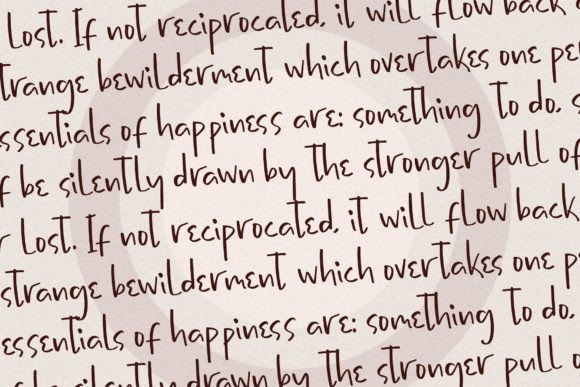 Lost. If not reciprocated, it will flow back
strange bewilderment which overtakes one
essentials of happiness are: something to do,
be silently drawn by the stronger pull of
Lost. If not reciprocated, it will flow back
strange bewilderment which overtakes one
essentials of happiness are: something to do.
be silently drawn by the stronger pull of